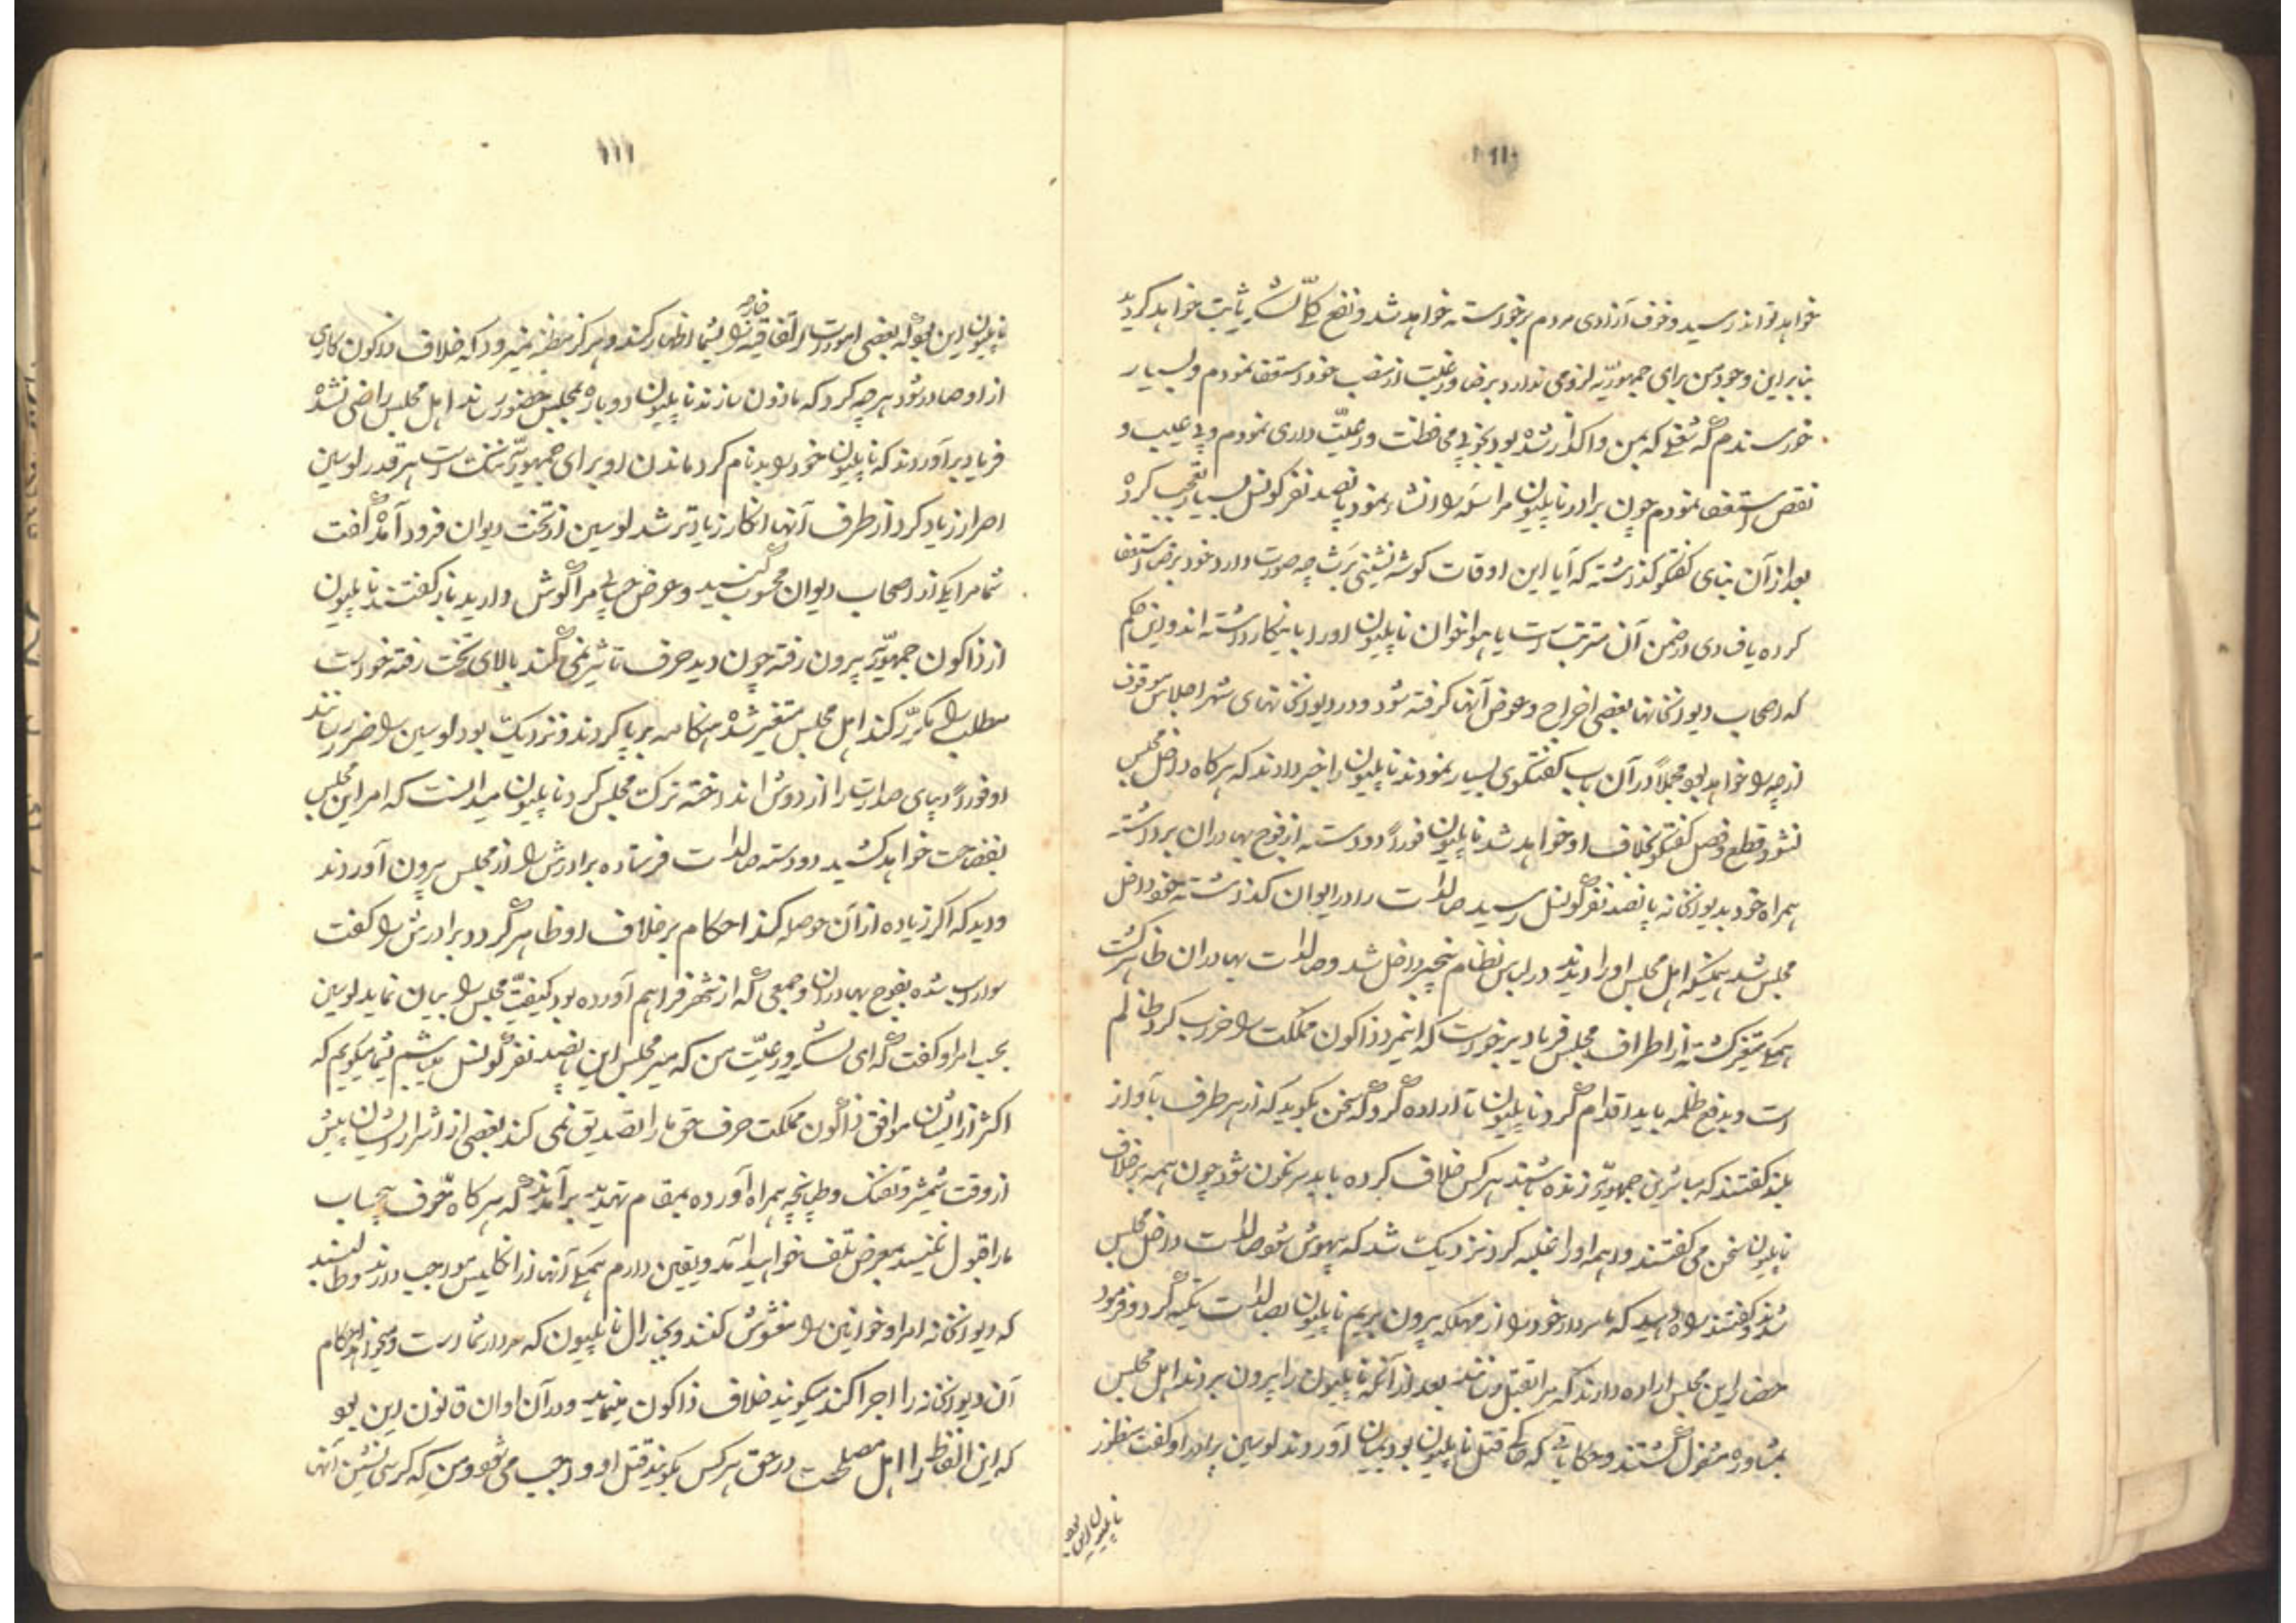 ۱۱۰
خواهد تواند رسید و خوف آزادی مردم برخواسته خواهد شد و نفع کل لشکر ثابت خواهد کردید
بنابراین وجود من برای جمهوریه لزومی ندارد برضا و رغبت از منصب خود استعفا نمودم و بسیار
خورسندم که شغلی که بمن واکذار شده بود بخوبی محافظت و رعیت داری نمودم و بی عیب و
نقص استعفا نمودم چون برادر ناپلیون مراسله را انشاء نمود پانصد نفر کونسل بسیار تعجب کرده
بعد از آن بنای کفتکو کذاشته که آیا این اوقات کوشه نشینی برث چه صورت دارد خود برضا استعفا
کرده یا فسادی در ضمن آن مترتب است یا هواخوان ناپلیون او را باینکار داشته اند و این حکم
که اصحاب دیوانخانها بعضی اخراج و عوض آنها کرفته شود و در دیوانخانهای شهر اجلاس موقوف
از چه راه خواهد بود مجملاً در آن باب کفتکوی بسیار نمودند ناپلیون را خبر دادند که هرکاه داخل مجلس
نشود قطع و فصل کفتکو بخلاف او خواهد شد ناپلیون فوراً دو دسته از فوج بهادران برداشته
همراه خود بدیوانخانه پانصد نفر کونسل رسید صالدات را در ایوان کذاشته خود داخل
مجلس شد همینکه اهل مجلس او را دیدند در لباس نظام داخل شد و صالدات بهادران ظاهر کشت
همکی متغیر کشته از اطراف مجلس فریاد برخواست که اینمرد ذاکون مملکت را خراب کرد ظالم
است و بدفع ظلمه باید اقدام کرد ناپلیون تا اراده کرد که سخن بکوید که از هر طرف بآواز
بلند کفتند که مباشرین جمهوریه زنده باشند هرکس خلاف کرده باید سرنکون شود چون همه برخلاف
ناپلیون سخن می کفتند واهمه او را غلبه کرد نزدیک شد که بیهوش شود صالدات داخل مجلس
شدند و کفتند راه دهید که ما سردار خود را از مهلکه بیرون بریم ناپلیون بصالدات تکیه کرد و فرمود
حضار این مجلس اراده دارند که مرا بقتل رسانند بعد از آنکه ناپلیون را بیرون بردند اهل مجلس
بمشاوره مشغول کشتند و حکایاتی که قتل ناپلیون بود بمیان آوردند لوسین برادر او کفت منظور
ناپلیون این بود
۱۱۱
ناپلیون این بود که بعضی امورات اتفاقیه خارجه را بشما اظهار کند و هرکز مظنه نمیرود که خلاف ذاکون کاری
از او صادر شود هر چه کرد که ماذون سازند ناپلیون دوباره بمجلس حضور رساند اهل مجلس راضی نشده
فریاد برآوردند که ناپلیون خود را بدنام کرد ماندن او برای جمهوریه ننک است هر قدر لوسین
اصرار زیاد کرد از طرف آنها انکار زیادتر شد لوسین از تخت دیوان فرود آمده کفت
شما مرا یکی از اصحاب دیوان محسوب کنید و عرض حسابی مرا کوش دارید باز کفتند ناپلیون
از ذاکون جمهوریه بیرون رفته چون دید حرف تاثیر نمی کند بالای تخت رفته خواست
مطلب را مکرر کند اهل مجلس متغیر شده هنکامه برپا کردند و نزدیک بود لوسین را ضرر رسانند
او فوراً دیبای صدارت را از دوش انداخته ترک مجلس کرد ناپلیون میدانست که امر این مجلس
بفضاحت خواهد کشید دو دسته صالدات فرستاده برادرش را از مجلس بیرون آوردند
و دید که اکر زیاده از آن حوصله کند احکام برخلاف او ظاهر کردد برادرش را کفت
سوار اسب شده بفوج بهادران و جمعی که از شهر فراهم آورده بود کیفیت مجلس را بیان نماید لوسین
بحسب امر او کفت که ای لشکر و رعیت من که میر مجلس این پانصد نفر کونسل میباشم بشما میکویم که
اکثر از ایشان موافق ذاکون مملکت حرف حق ما را تصدیق نمی کند بعضی از اشرار ایشان پیش
از وقت شمشیر و تفنک و طپانچه همراه آورده بمقام تهدید برآمدند که هرکاه حرف بیحساب
ما را قبول نکنید بمعرض تلف خواهید آمد و یقین دارم همکی آنها از انکلیس مواجب دارند و طالبند
که دیوانخانه امرا و خوانین را مغشوش کنند و بجنرال ناپلیون که سردار شما است و میخواهد احکام
آن دیوانخانه را اجرا کند میکویند خلاف ذاکون مینماید و در آن اوان قانون این بود
که این الفاظ را اهل مصلحت در حق هر کس بکویند قتل او واجب می شود و من که کرسی نشین آنها